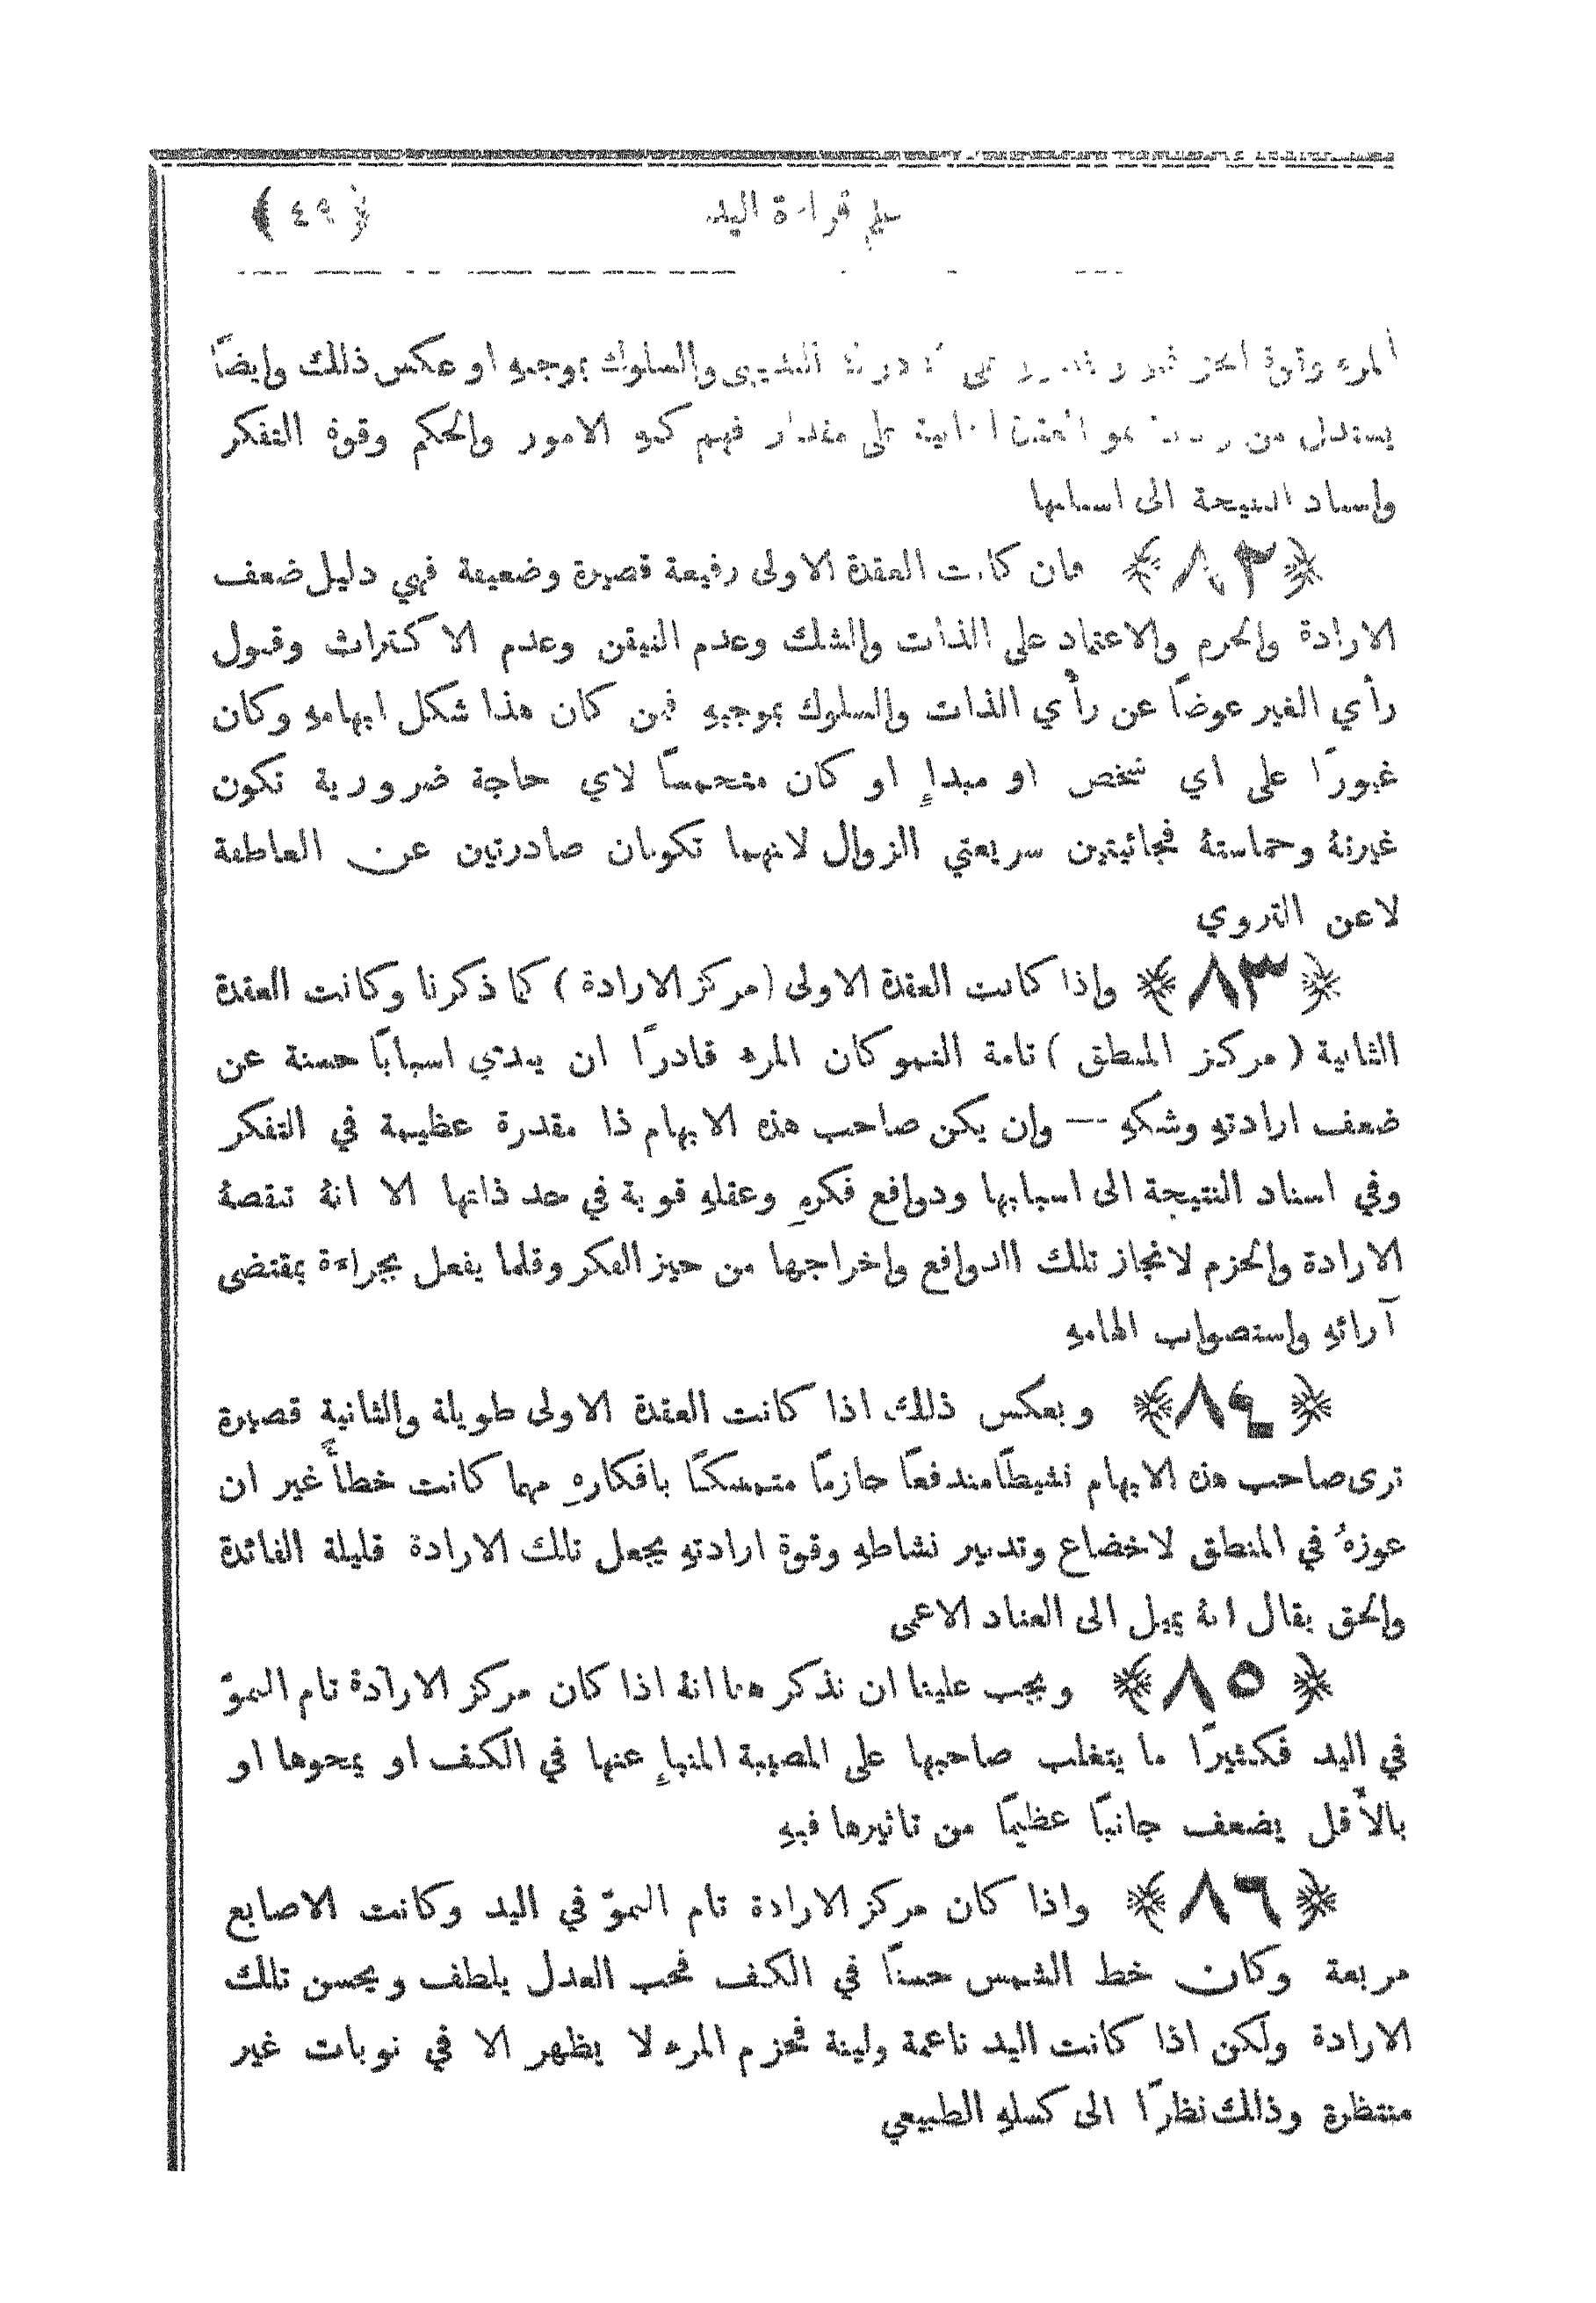 علم قراءة اليد ﴿ ٤٩ ﴾
المرء وقوة والسلوك بموجبهِ او عكس ذلك وايضًا
يستدل من نمو العقدة الثانية على مقدار فهم كنه الامور والحكم وقوة التفكر
واسناد النتيجة الى اسبابها
﴿ ٨٢ ﴾ فان كانت العقدة الاولى رفيعة قصيرة وضعيفة فهي دليل ضعف
الارادة والحزم والاعتماد على الذات والشك وعدم التيقن وعدم الاكتراث وقبول
رأي الغير عوضًا عن رأي الذات والسلوك بموجبهِ فمن كان هذا شكل ابهامهِ وكان
غيورًا على اي شخص او مبدإٍ او كان متحمسًا لاي حاجة ضرورية تكون
غيرتهُ وحماستهُ فجائيتين سريعتي الزوال لانهما تكونان صادرتين عن العاطفة
لا عن التروي
﴿ ٨٣ ﴾ واذا كانت العقدة الاولى (مركز الارادة) كما ذكرنا وكانت العقدة
الثانية (مركز المنطق) تامة النمو كان المرء قادرًا ان يبدي اسبابًا حسنة عن
ضعف ارادتهِ وشكهِ — وان يكن صاحب هذه الابهام ذا مقدرة عظيمة في التفكر
وفي اسناد النتيجة الى اسبابها ودوافع فكرهِ وعقلهِ قوية في حد ذاتها الا انهُ تنقصهُ
الارادة والحزم لانجاز تلك الدوافع واخراجها من حيز الفكر وقلما يفعل بجراءة بمقتضى
آرائهِ واستصواب الهامهِ
﴿ ٨٤ ﴾ وبعكس ذلك اذا كانت العقدة الاولى طويلة والثانية قصيرة
ترى صاحب هذه الابهام نشيطًا مندفعًا حازمًا متمسكًا بافكارهِ مهما كانت خطأً غير ان
عوزهُ في المنطق لاخضاع وتدبير نشاطهِ وقوة ارادتهِ يجعل تلك الارادة قليلة الفائدة
والحق يقال انهُ يميل الى العناد الاعمى
﴿ ٨٥ ﴾ ويجب علينا ان نذكر هنا انهُ اذا كان مركز الارادة تام النموّ
في اليد فكثيرًا ما يتغلب صاحبها على المصيبة المنبإِ عنها في الكف او يمحوها او
بالأقل يضعف جانبًا عظيمًا من تاثيرها فيهِ
﴿ ٨٦ ﴾ واذا كان مركز الارادة تام النموّ في اليد وكانت الاصابع
مربعة وكان خط الشمس حسنًا في الكف فحب العدل يلطف ويحسن تلك
الارادة ولكن اذا كانت اليد ناعمة ولينة فحزم المرء لا يظهر الا في نوبات غير
منتظرة وذلك نظرًا الى كسلهِ الطبيعي